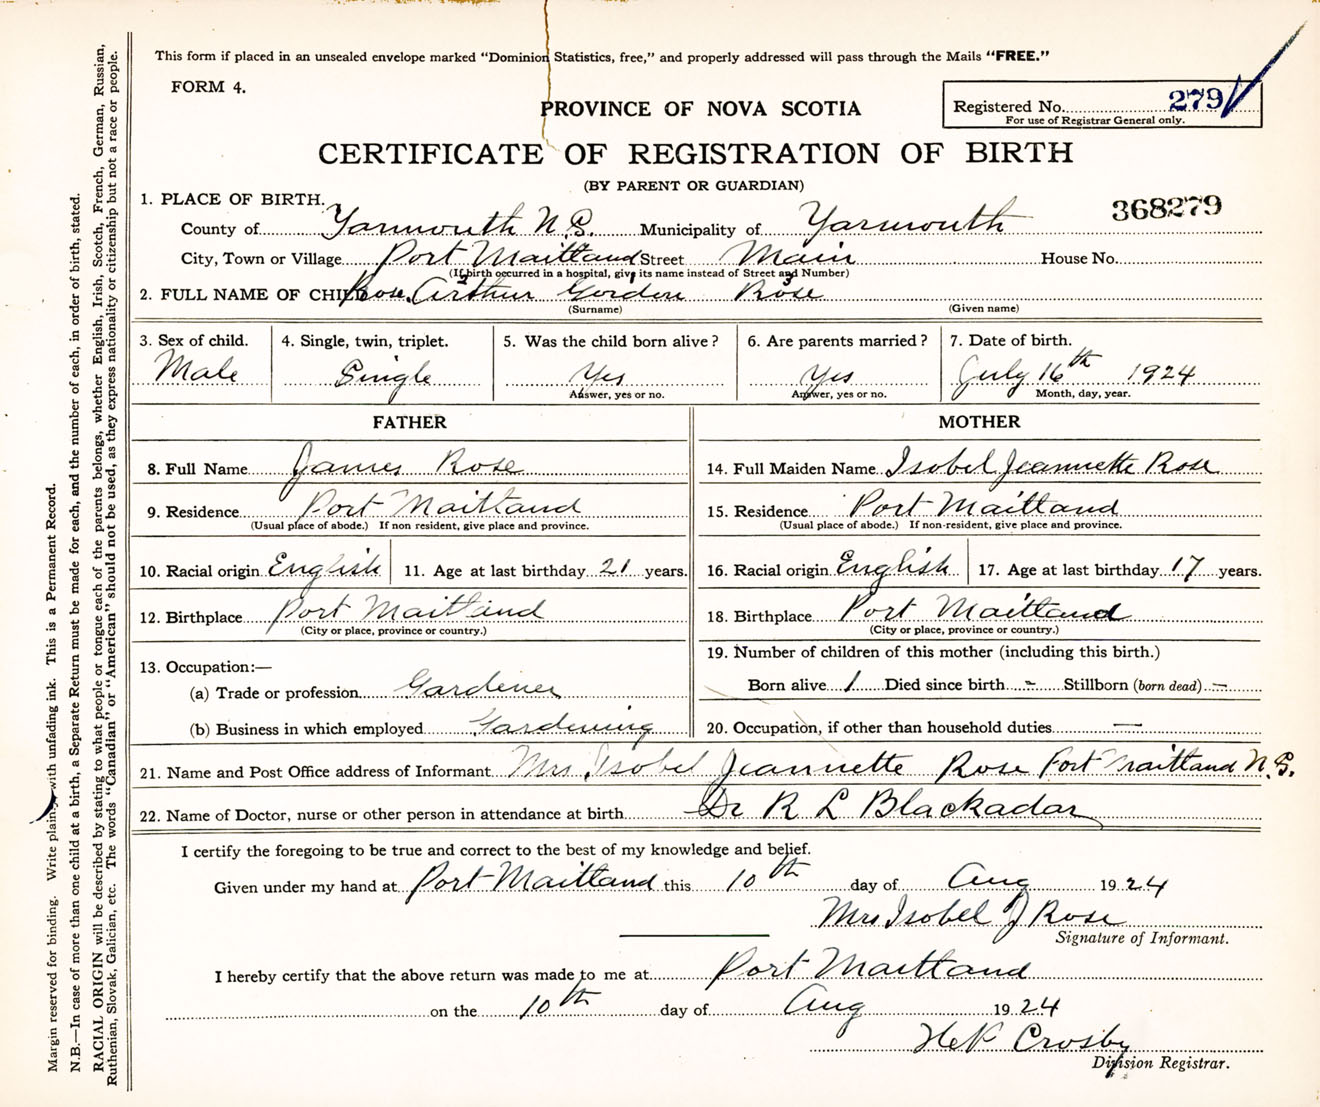 This form if placed in an unsealed envelope marked "Dominion Statistics, free," and properly addressed will pass through the Mails "FREE."
FORM 4.
PROVINCE OF NOVA SCOTIA
Registered No. 279
For use of Registrar General only.
CERTIFICATE OF REGISTRATION OF BIRTH
(BY PARENT OR GUARDIAN)
368279
1. PLACE OF BIRTH.
County of Yarmouth N.S. Municipality of Yarmouth
City, Town or Village Port Maitland Street Main House No.
(If birth occurred in a hospital, give its name instead of Street and Number)
2. FULL NAME OF CHILD Rose, Arthur Gordon Rose
(Surname) (Given name)
3. Sex of child. 4. Single, twin, triplet. 5. Was the child born alive? 6. Are parents married? 7. Date of birth.
Male Single Yes Yes July 16th 1924
Answer, yes or no. Answer, yes or no. Month, day, year.
FATHER
8. Full Name James Rose
9. Residence Port Maitland
(Usual place of abode.) If non resident, give place and province.
10. Racial origin English 11. Age at last birthday 21 years.
12. Birthplace Port Maitland
(City or place, province or country.)
13. Occupation:—
(a) Trade or profession Gardener
(b) Business in which employed Gardening
MOTHER
14. Full Maiden Name Isobel Jeannette Rose
15. Residence Port Maitland
(Usual place of abode.) If non-resident, give place and province.
16. Racial origin English 17. Age at last birthday 17 years.
18. Birthplace Port Maitland
(City or place, province or country.)
19. Number of children of this mother (including this birth.)
Born alive 1 Died since birth - Stillborn (born dead) -
20. Occupation, if other than household duties —
21. Name and Post Office address of Informant Mrs Isobel Jeannette Rose Port Maitland N.S.
22. Name of Doctor, nurse or other person in attendance at birth Dr R L Blackadar
I certify the foregoing to be true and correct to the best of my knowledge and belief.
Given under my hand at Port Maitland this 10th day of Aug 1924
Mrs Isobel J Rose
Signature of Informant.
I hereby certify that the above return was made to me at Port Maitland
on the 10th day of Aug 1924
Crosby
Division Registrar.
Margin reserved for binding. Write plainly with unfading ink. This is a Permanent Record.
N.B.—In case of more than one child at a birth, a Separate Return must be made for each, and the number of each, in order of birth, stated.
RACIAL ORIGIN will be described by stating to what people or tongue each of the parents belongs, whether English, Irish, Scotch, French, German, Russian,
Ruthenian, Slovak, Galician, etc. The words "Canadian" or "American" should not be used, as they express nationality or citizenship but not a race or people.